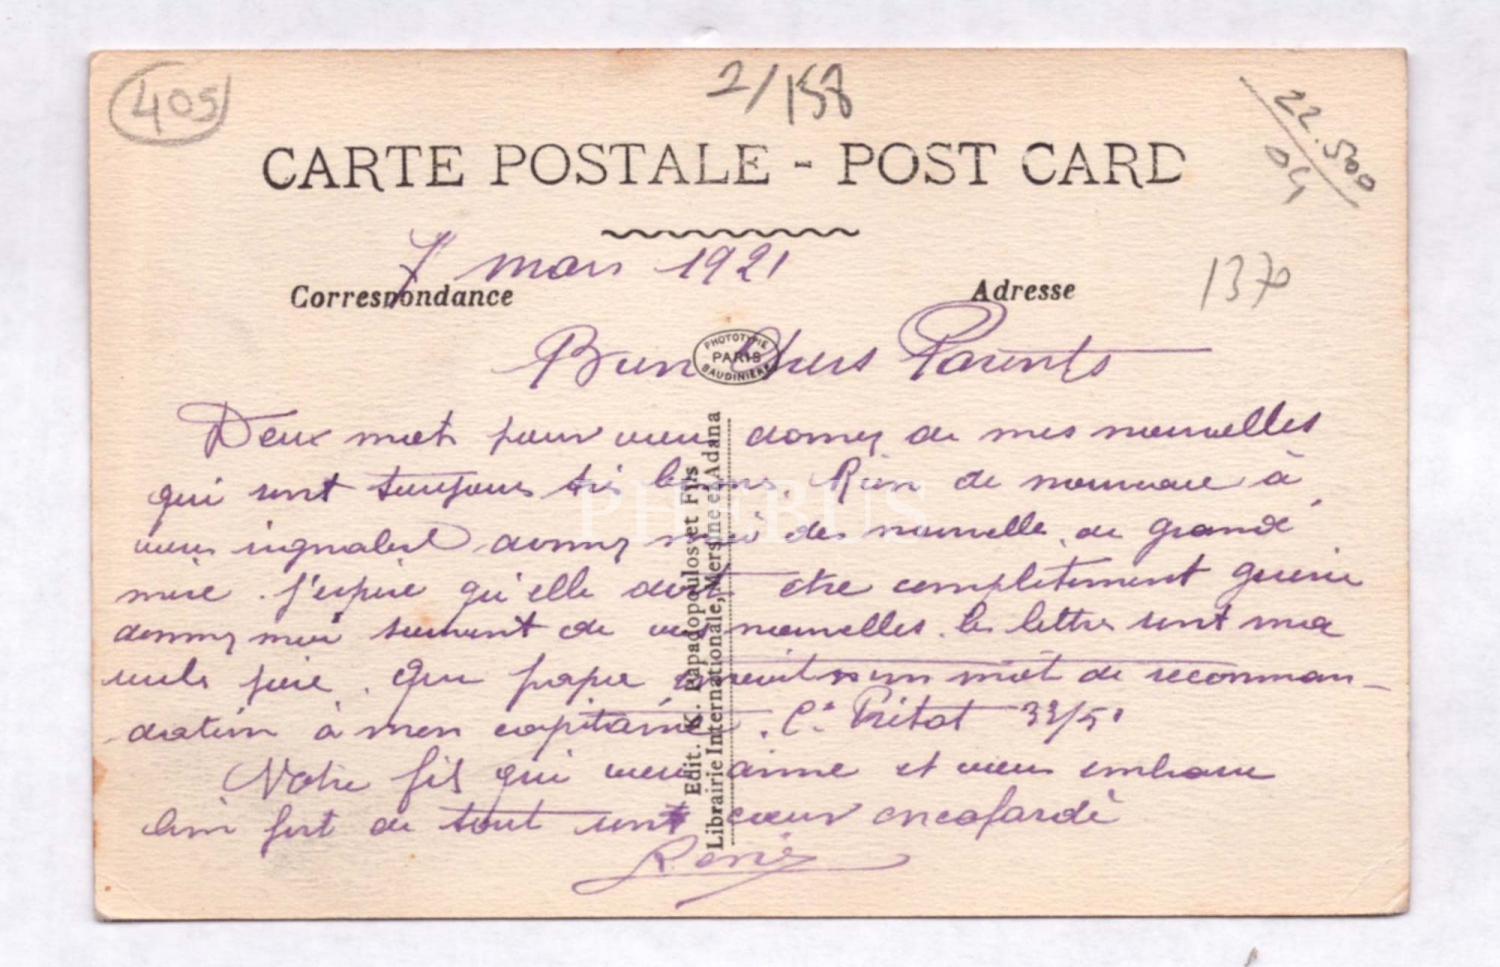 405
2/158
22.500
04
CARTE POSTALE - POST CARD
1370
7 mars 1921
Correspondance
Adresse
PHOTOTYPIE
PARIS
BAUDINIÈRE
Bien Chers Parents
Deux mots pour vous donner de mes nouvelles
qui sont toujours très bonnes. Rien de nouveau à
vous signaler donnez moi des nouvelles de grand
mère. J'espère qu'elle doit être complètement guérie
donnez moi souvent de vos nouvelles. les lettres sont ma
seule joie. Que papa un mot de recomman-
dation à mon capitaine. Cne Pritot 33/51
Votre fils qui vous aime et vous embrasse
bien fort de tout son cœur
René
Edit. K. Papadopoulos et Fils
Librairie Internationale, Mersine et Adana
PHEBUS